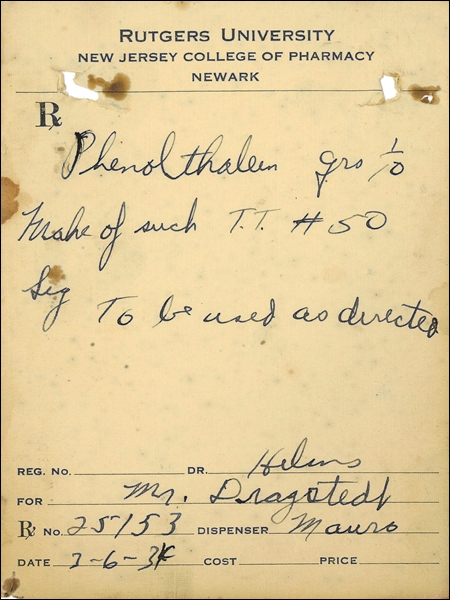 RUTGERS UNIVERSITY
NEW JERSEY COLLEGE OF PHARMACY
NEWARK
℞
Phenolthalein grs 1/10
Make of such T.T. # 50
Sig
To be used as directed
REG. No. DR. Helms
FOR Mr. Dragstedt
℞ No. 25153 DISPENSER Mauro
DATE 3-6-34 COST PRICE